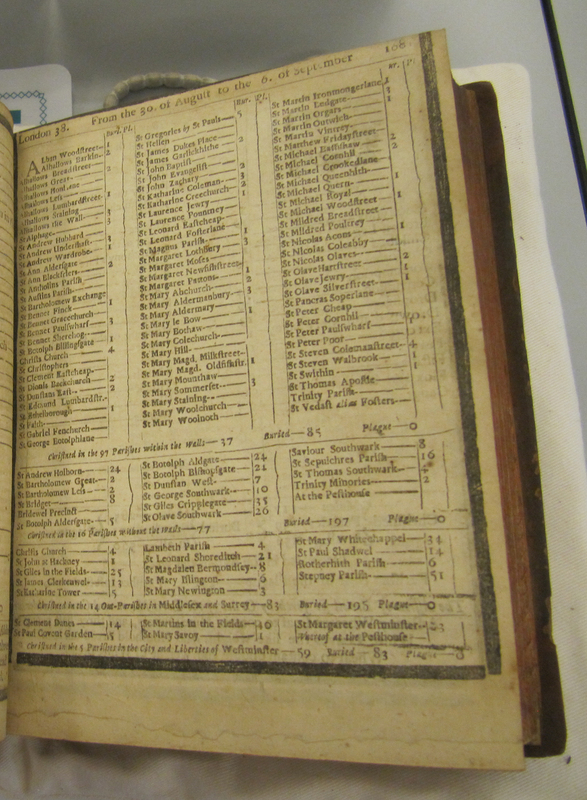 London 38. From the 30. of August to the 6. of September 168
Bur. Pl.
ALban Woodstreet 1
Alhallows Barkin 2
Alhallows Breadstreet
Alhallows Great
Alhallows HonLane
Alhallows Less
Alhallows Lumbardstreet
Alhallows Staining
Alhallows the Wall
St Alphage
St Andrew Hubbard
St Andrew Undershaft
St Andrew Wardrobe
St Ann Aldersgate
St Ann Blackfriers
St Antholins Parish
St Austins Parish
St Bartholomew Exchange
St Bennet Finck
St Bennet Gracechurch
St Bennet Paulswharf
St Bennet Sherehog
St Botolph Billingsgate
Christs Church
St Christophers
St Clement Eastcheap
St Dionis Backchurch
St Dunstans East
St Edmund Lumbardstr.
St Ethelborough
St Faith
St Gabriel Fenchurch
St George Botolphlane
Bur. Pl.
St Gregories by St Pauls 5
St Hellen
St James Dukes Place
St James Garlickhithe
St John Baptist
St John Evangelist
St John Zachary
St Katharine Coleman
St Katharine Creechurch
St Laurence Jewry
St Laurence Pountney
St Leonard Eastcheap
St Leonard Fosterlane
St Magnus Parish
St Margaret Lothbury
St Margaret Moses
St Margaret Newfishstreet
St Margaret Pattons
St Mary Abchurch
St Mary Aldermanbury
St Mary Aldermary
St Mary le Bow
St Mary Bothaw
St Mary Colechurch
St Mary Hill
St Mary Magd. Milkstreet
St Mary Magd. Oldfishstr. 1
St Mary Mounthaw
St Mary Sommerset 3
St Mary Staining
St Mary Woolchurch
St Mary Woolnoth
Bur. Pl.
St Martin Ironmongerlane 1
St Martin Ludgate
St Martin Orgars
St Martin Outwich
St Martin Vintrey
St Matthew Fridaystreet
St Michael Bassishaw
St Michael Cornhil
St Michael Crookedlane
St Michael Queenhith
St Michael Quern
St Michael Royal
St Michael Woodstreet
St Mildred Breadstreet
St Mildred Poultrey
St Nicolas Acons
St Nicolas Coleabby
St Nicolas Olaves
St Olave Hartstreet
St Olave Jewry
St Olave Silverstreet
St Pancras Soperlane
St Peter Cheap
St Peter Cornhil
St Peter Paulswharf
St Peter Poor
St Steven Colemanstreet
St Steven Walbrook 1
St Swithin 1
St Thomas Apostle
Trinity Parish
St Vedast alias Fosters 1
Christned in the 97 Parishes within the Walls 37 Buried 85 Plague 0
St Andrew Holborn 24
St Bartholomew Great 2
St Bartholomew Less 2
St Bridget 8
Bridewel Precinct
St Botolph Aldersgate 5
St Botolph Aldgate 24
St Botolph Bishopsgate
St Dunstan West 7
St George Southwark 10
St Giles Cripplegate 35
St Olave Southwark 26
Saviour Southwark 8
St Sepulchres Parish 16
St Thomas Southwark
Trinity Minories 2
At the Pesthouse
Christned in the 16 Parishes without the Walls 77 Buried 197 Plague 0
Christs Church 4
St John at Hackney 1
St Giles in the Fields 25
St James Clerkenwel 13
St Katharine Tower 5
Lambeth Parish 4
St Leonard Shoreditch 21
St Magdalen Bermondsey 8
St Mary Islington 6
St Mary Newington 3
St Mary Whitechappel 34
St Paul Shadwel 14
Rotherhith Parish 6
Stepney Parish 51
Christned in the 14 Out-Parishes in Middlesex and Surrey 83 Buried 195 Plague 0
St Clement Danes 14
St Paul Covent Garden 5
St Martins in the Fields
St Mary Savoy 1
St Margaret Westminster
Whereof at the Pesthouse
Christned in the 5 Parishes in the City and Liberties of Westminster 59 Buried 83 Plague 0